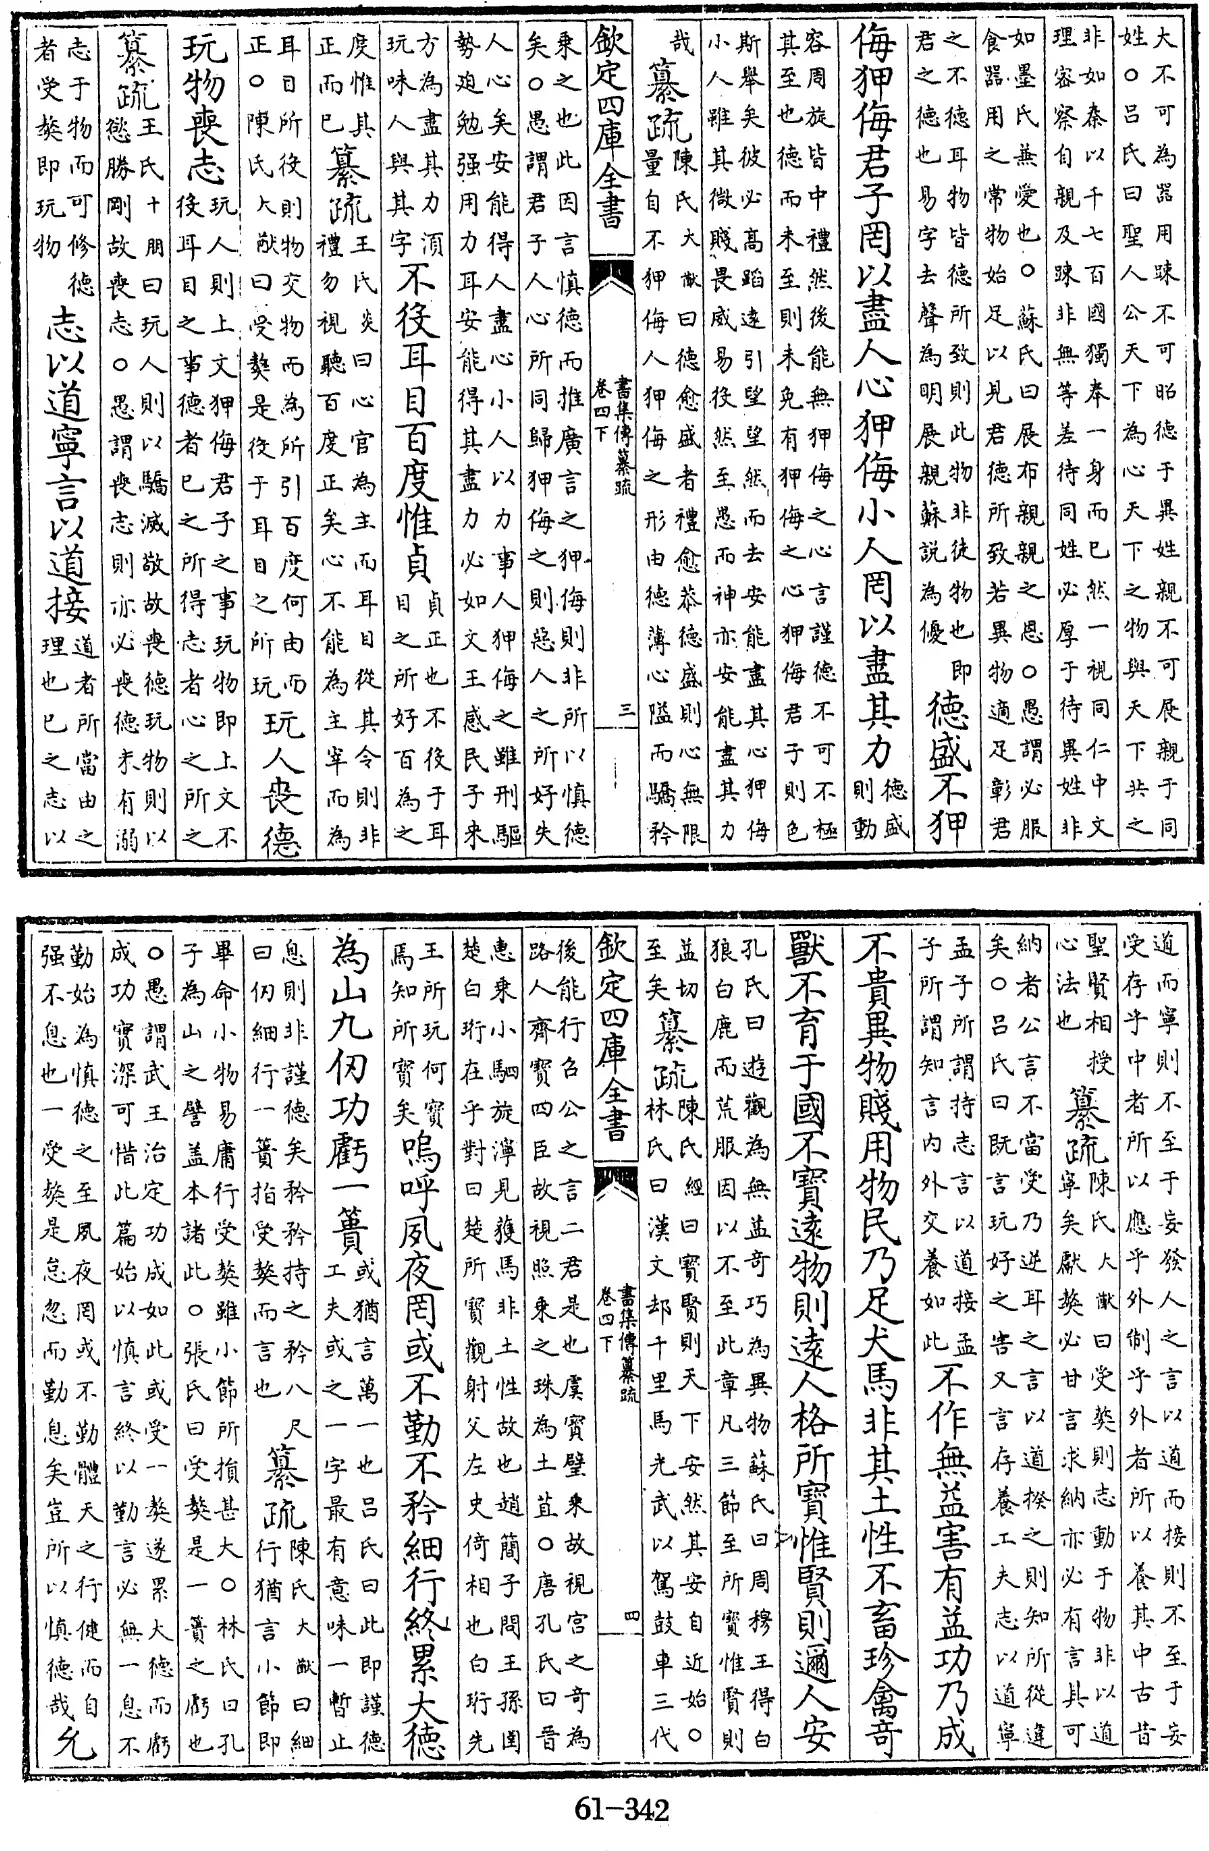 大不可為器用踈不可昭德于異姓親不可展親于同
姓○呂氏曰聖人公天下為心天下之物與天下共之
非如秦以千七百國獨奉一身而已然一視同仁中文
理宻察自親及踈非無等差待同姓必厚于待異姓非
如墨氏兼愛也○蘇氏曰展布親親之恩○愚謂必服
食器用之常物始足以見君德所致若異物適足彰君
之不德耳物皆德所致則此物非徒物也即
君之德也易字去聲為明展親蘇說為優
德盛不狎
侮狎侮君子罔以盡人心狎侮小人罔以盡其力
德盛
則動
容周旋皆中禮然後能無狎侮之心言謹德不可不極
其至也德而未至則未免有狎侮之心狎侮君子則色
斯舉矣彼必高蹈遠引望望然而去安能盡其心狎侮
小人雖其微賤畏威易役然至愚而神亦安能盡其力
哉
纂疏
陳氏大猷曰德愈盛者禮愈恭德盛則心無限
量自不狎侮人狎侮之形由德薄心隘而驕矜
欽定四庫全書
書集傳纂疏
卷四下
三
乘之也此因言慎德而推廣言之狎侮則非所以慎德
矣○愚謂君子人心所同歸狎侮之則惡人之所好失
人心矣安能得人盡心小人以力事人狎侮之雖刑驅
勢廹勉强用力耳安能得其盡力必如文王感民子來
方為盡其力湏
玩味人與其字
不役耳目百度惟貞
貞正也不役于耳
目之所好百為之
度惟其
正而已
纂疏
王氏炎曰心官為主而耳目從其令則非
禮勿視聽百度正矣心不能為主宰而為
耳目所役則物交物而為所引百度何由而
正○陳氏大猷曰受獒是役于耳目之所玩
玩人喪德
玩物喪志
玩人則上文狎侮君子之事玩物即上文不
役耳目之事德者已之所得志者心之所之
纂疏
王氏十朋曰玩人則以驕滅敬故喪德玩物則以
慾勝剛故喪志○愚謂喪志則亦必喪德未有溺
志于物而可修德
者受獒即玩物
志以道寧言以道接
道者所當由之
理也已之志以
道而寧則不至于妄發人之言以道而接則不至于妄
受存乎中者所以應乎外制乎外者所以養其中古昔
聖賢相授
心法也
纂疏
陳氏大猷曰受獒則志動于物非以道
寧矣獻獒必甘言求納亦必有言其可
納者公言不當受乃逆耳之言以道揆之則知所從違
矣○呂氏曰既言玩好之害又言存養工夫志以道寧
孟子所謂持志言以道接孟
子所謂知言內外交養如此
不作無益害有益功乃成
不貴異物賤用物民乃足犬馬非其土性不畜珍禽奇
獸不育于國不寶遠物則遠人格所寶惟賢則邇人安
孔氏曰遊觀為無益奇巧為異物蘇氏曰周穆王得白
狼白鹿而荒服因以不至此章凡三節至所寶惟賢則
益切
至矣
纂疏
陳氏經曰寶賢則天下安然其安自近始○
林氏曰漢文却千里馬光武以駕鼓車三代
欽定四庫全書
書集傳纂疏
卷四下
四
後能行召公之言二君是也虞寶璧乘故視宮之奇為
路人齊寶四臣故視照乘之珠為土苴○唐孔氏曰晉
惠乘小駟旋濘見獲馬非土性故也趙簡子問王孫圉
楚白珩在乎對曰楚所寶觀射父左史倚相也白珩先
王所玩何寶
焉知所寶矣
嗚呼夙夜罔或不勤不矜細行終累大德
為山九仞功虧一簣
或猶言萬一也呂氏曰此即謹德
工夫或之一字最有意味一暫止
息則非謹德矣矜矜持之矜八尺
曰仞細行一簣指受獒而言也
纂疏
陳氏大猷曰細
行猶言小節即
畢命小物易庸行受獒雖小節所損甚大○林氏曰孔
子為山之譬盖本諸此○張氏曰受獒是一簣之虧也
○愚謂武王治定功成如此或受一獒遂累大德而虧
成功實深可惜此篇始以慎言終以勤言必無一息不
勤始為慎德之至夙夜罔或不勤體天之行健而自
强不息也一受獒是怠忽而勤息矣豈所以慎德哉
允
61-342